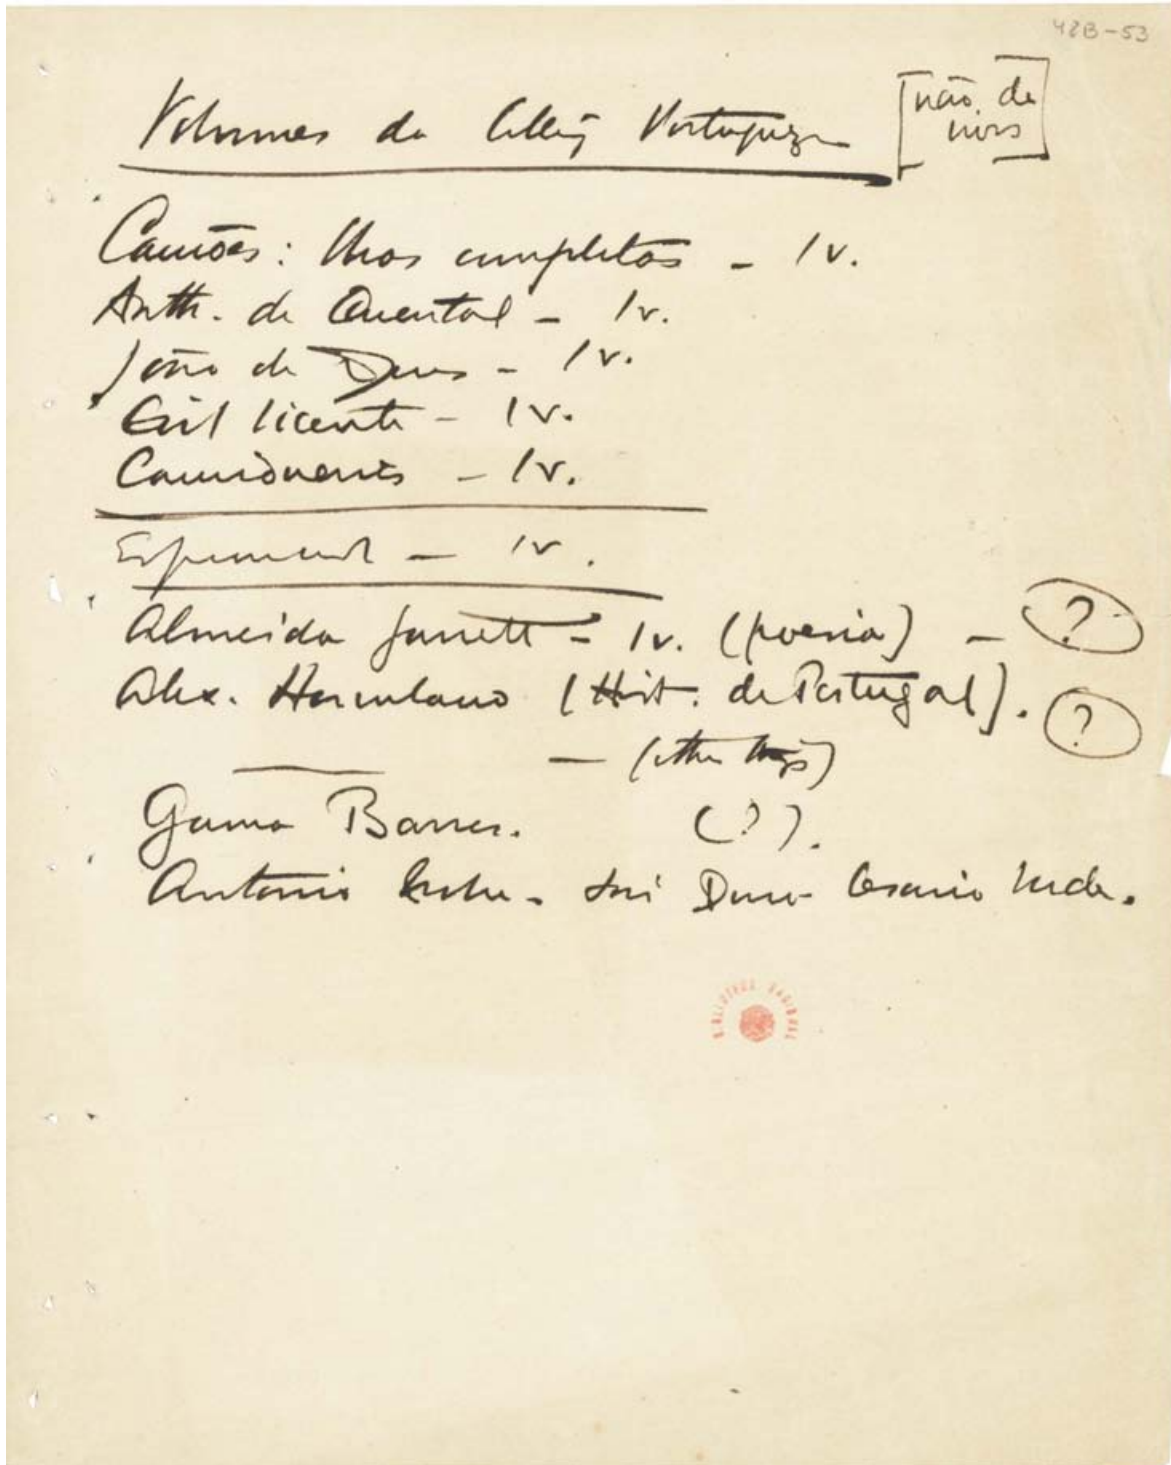 48B-53
Volumes da Collecç Portugueza [não de
vivos]
Camões: Obras completas – 1 v.
Anth. de Quental – 1 v.
João de Deus – 1 v.
Gil Vicente – 1 v.
Cancioneiros – 1 v.
– 1 v.
Almeida Garrett – 1 v. (poesia) – ?
Alex. Herculano (Hist. de Portugal). ?
— (other things)
Gama Barros. (?).
Antonio Nobre – José Duro – Cesario Verde.
BIBLIOTECA NACIONAL